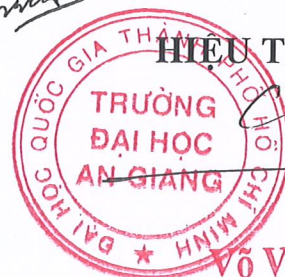 HIỆU T
ĐẠI HỌC QUỐC GIA THÀNH PHỐ HỒ CHÍ MINH
TRƯỜNG
ĐẠI HỌC
AN GIANG
Võ V